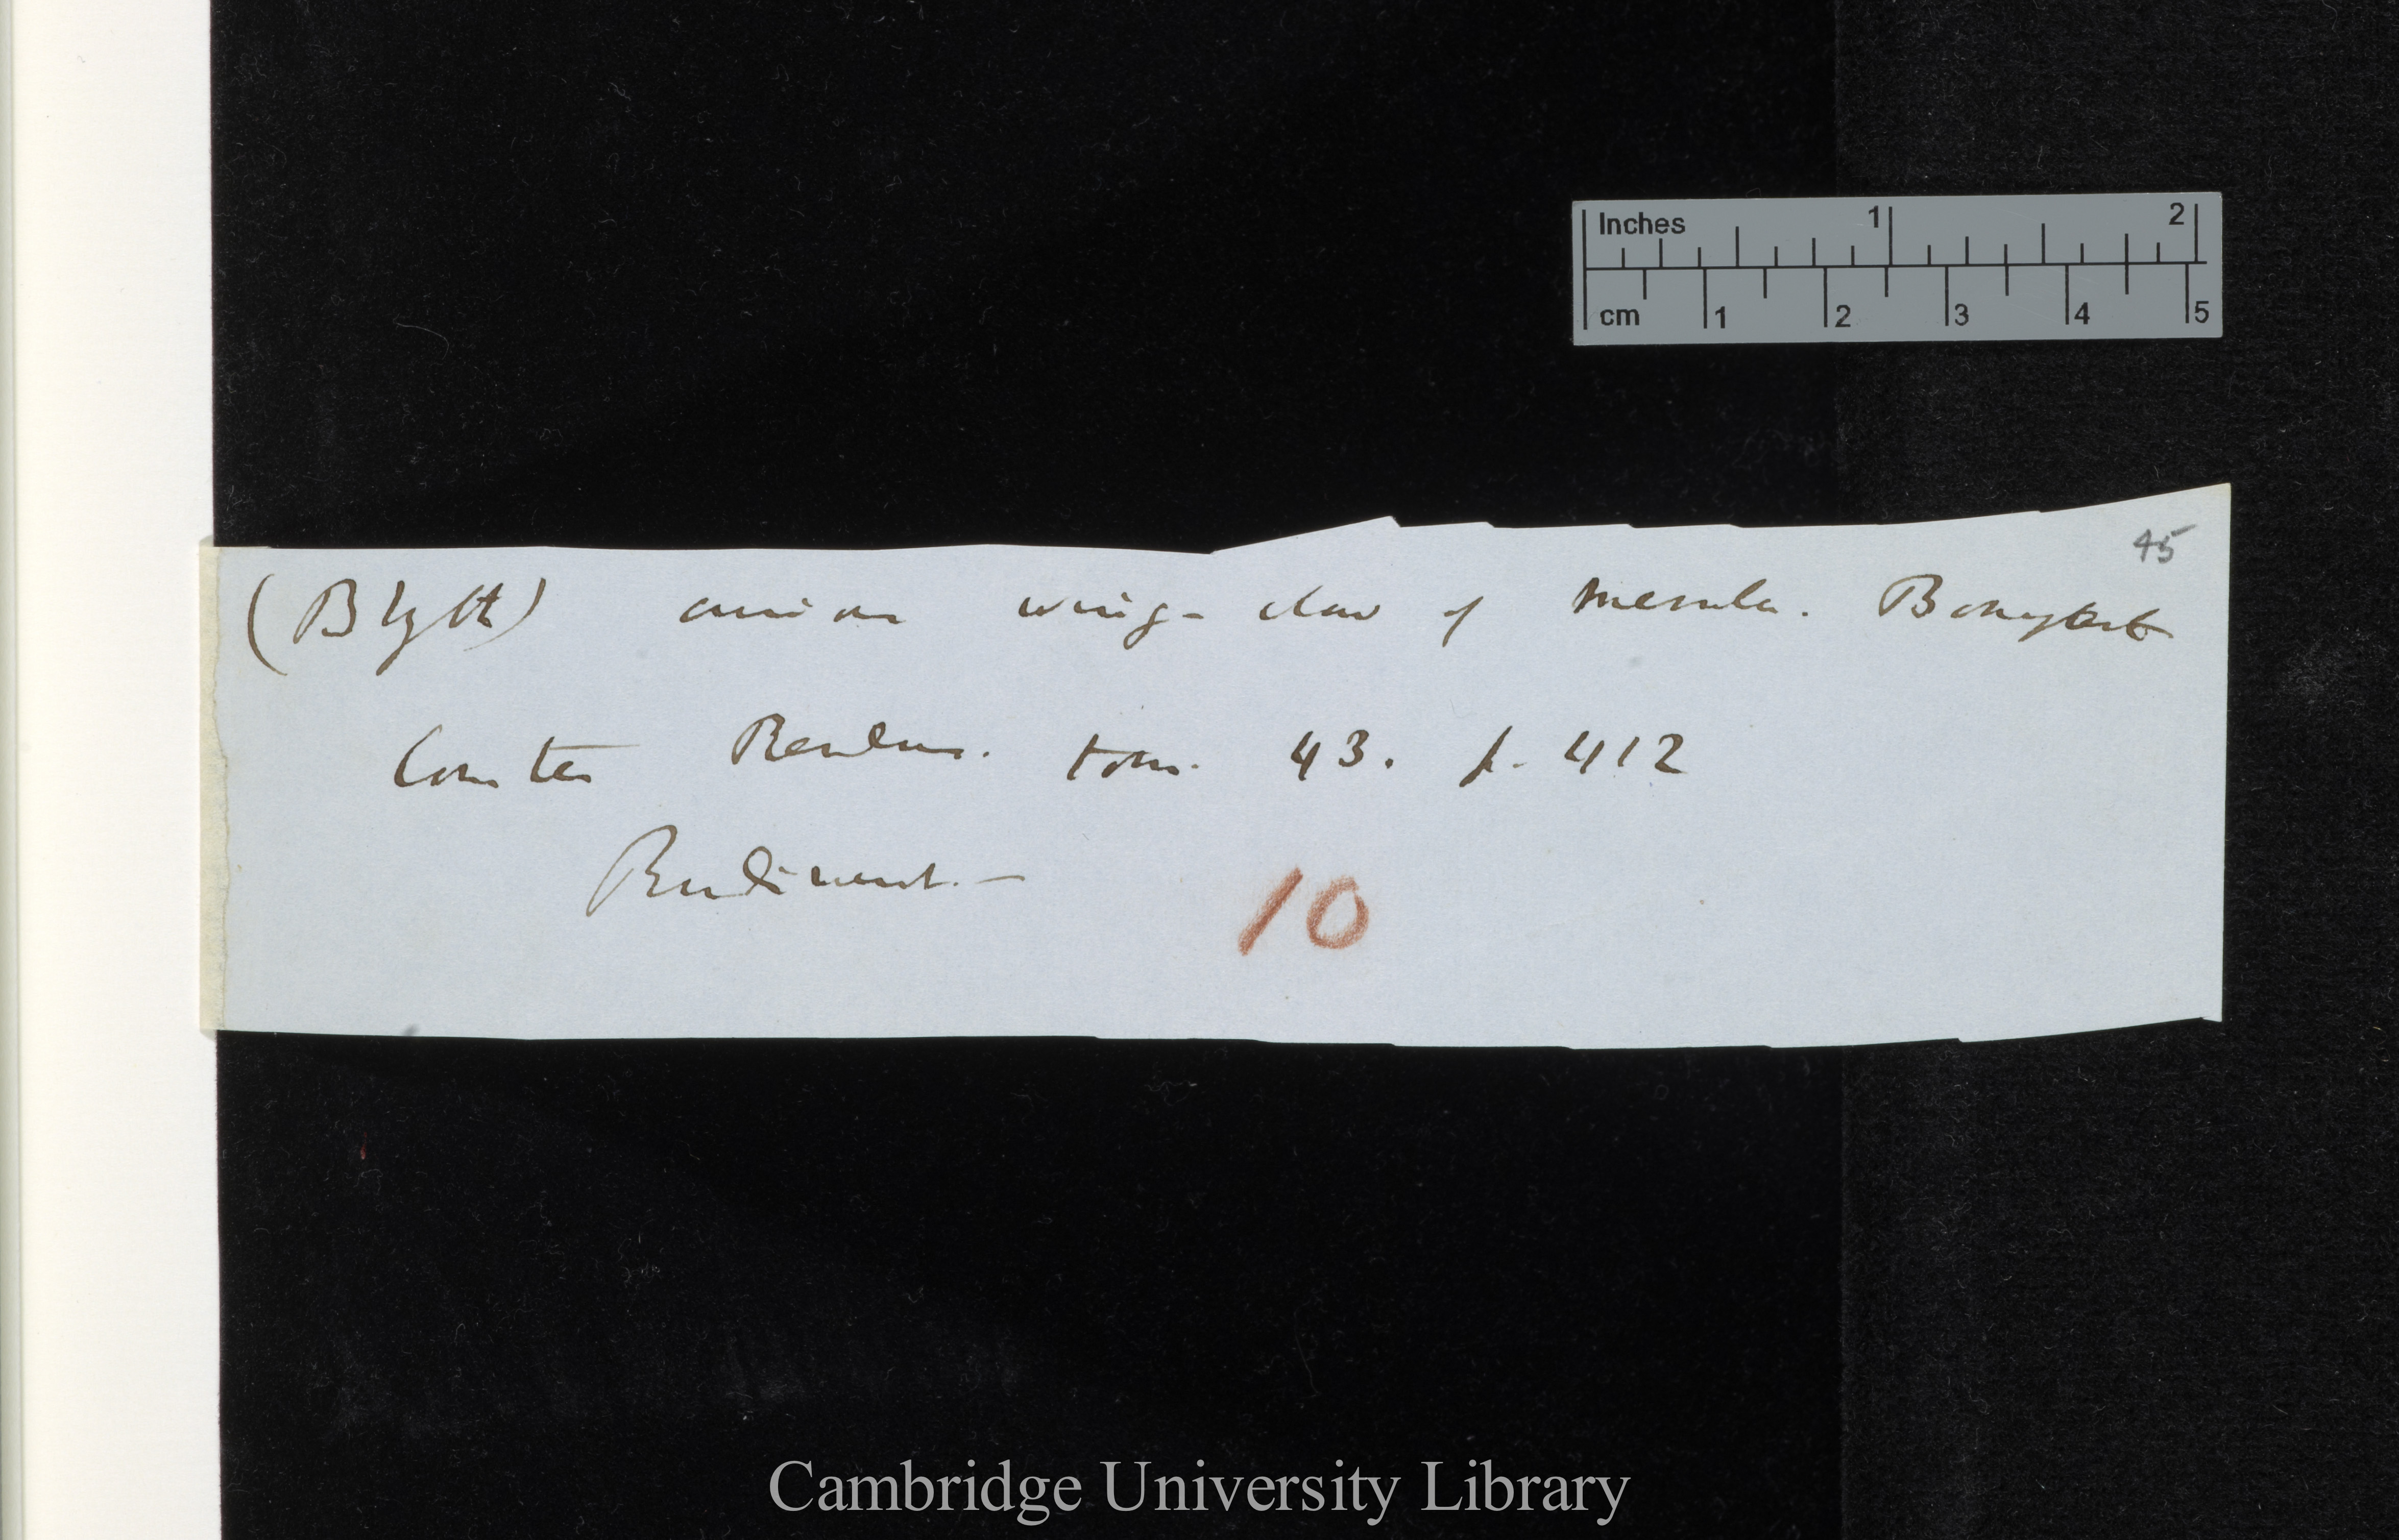 Inches 1 2
cm 1 2 3 4 5
45
(Blyth) curious wing-claw of Merula. Bonapart
Comtes Rendus. tom. 43. p. 412
Rudiment. —
10
Cambridge University Library